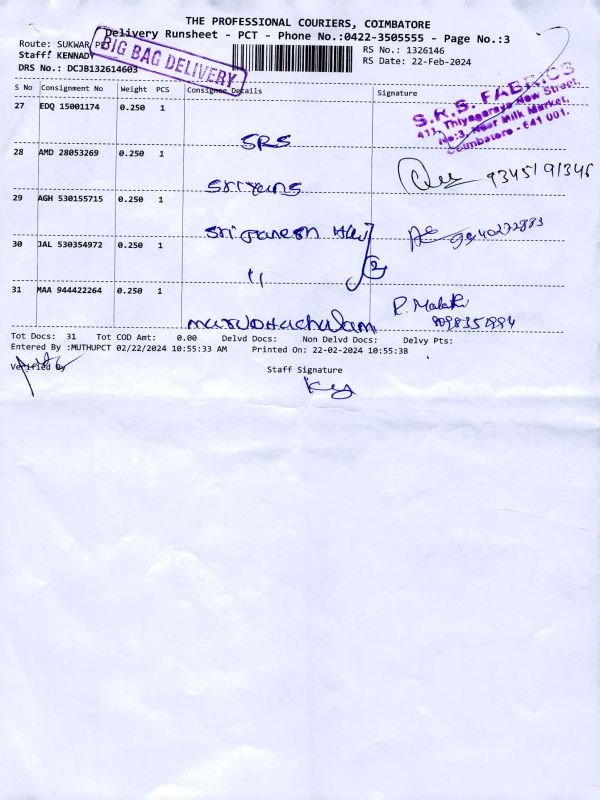 THE PROFESSIONAL COURIERS, COIMBATORE
Delivery Runsheet - PCT - Phone No.:0422-3505555 - Page No.:3
Route: SUKWAR PET
RS No.: 1326146
Staff: KENNADY
RS Date: 22-Feb-2024
DRS No.: DCJB132614603
BIG BAG DELIVERY
S No Consignment No Weight PCS Consignee Details Signature
27 EDQ 15001174 0.250 1
SRS
S.R.S. FABRICS
411, Thiyagaraya New Street,
No:3, Near Milk Market,
Coimbatore - 641 001.
28 AMD 28053269 0.250 1
29 AGH 530155715 0.250 1
Sri Ganesh
30 JAL 530354972 0.250 1
11
2
31 MAA 944422264 0.250 1
R. Malathi
Tot Docs: 31 Tot COD Amt: 0.00 Delvd Docs: Non Delvd Docs: Delvy Pts:
Entered By :MUTHUPCT 02/22/2024 10:55:33 AM Printed On: 22-02-2024 10:55:38
Verified By
Staff Signature